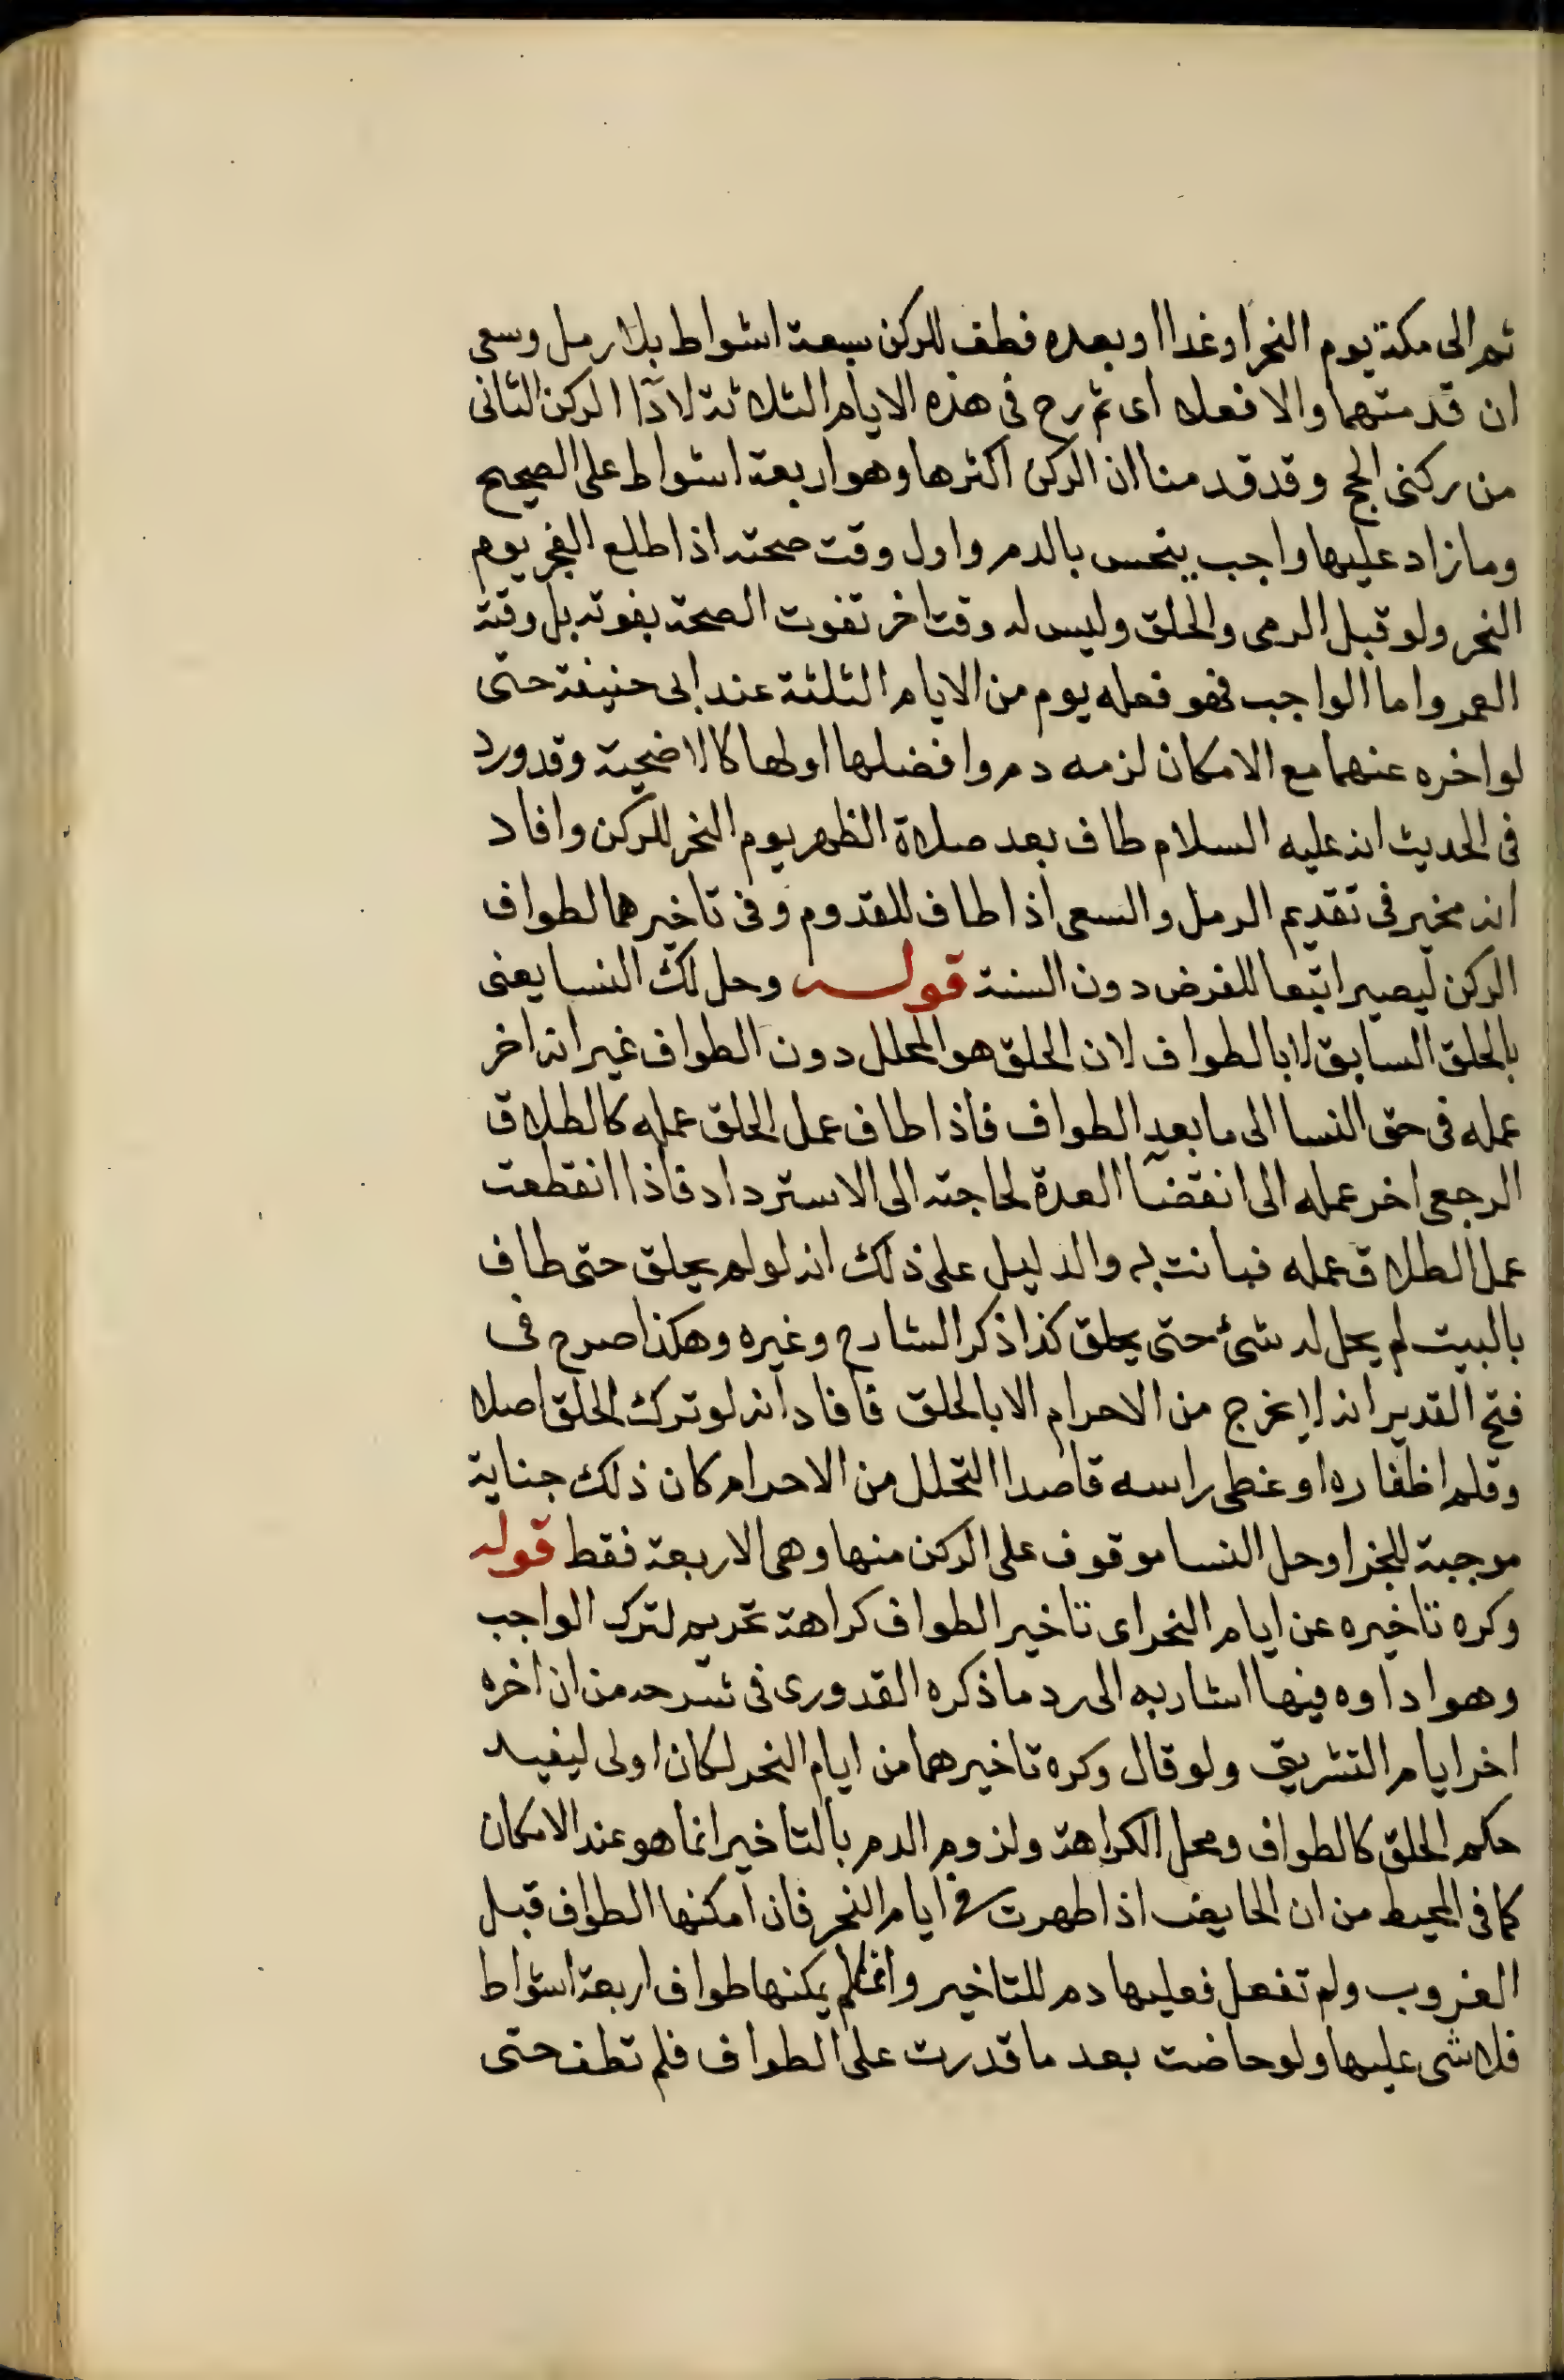 ثم الى مكة يوم النحر او غدا او بعده فطف للركن سبعة اشواط بلا رمل وسعى
ان قدمتهما والا فعلا اى ثم رح فى هذه الايام الثلاثة لاداآ الركن الثانى
من ركنى الحج وقد قدمنا ان الركن اكثرها وهو اربعة اشواط على الصحيح
وما زاد عليها واجب ينجبر بالدم واول وقت صحته اذا طلع الفجر يوم
النحر ولو قبل الرمى والحلق وليس له وقت اخر تفوت الصحة بفوته بل وقته
العمر واما الواجب فهو فعله يوم من الايام الثلثة عند ابى حنيفة حتى
لو اخره عنهما مع الامكان لزمه دم وافضلها اولها كالاضحية وقد ورد
فى الحديث انه عليه السلام طاف بعد صلاة الظهر يوم النحر للركن وافاد
انه مخير فى تقديم الرمل والسعى اذا طاف للقدوم وفى تاخيرهما لطواف
الركن ليصيرا تبعا للفرض دون السنة قوله وحل لك النسا يعنى
بالحلق السابق لا بالطواف لان الحلق هو المحلل دون الطواف غير انه اخر
عمله فى حق النسا الى ما بعد الطواف فاذا طاف عمل الحلق عمله كالطلاق
الرجعى اخر عمله الى انقضآ العدة لحاجته الى الاسترداد فاذا انقطعت
عمل الطلاق عمله فبانت به والدليل على ذلك انه لو لم يحلق حتى طاف
بالبيت لم يحل له شئ حتى يحلق كذا ذكر الشارح وغيره وهكذا صرح فى
فتح القدير انه لا يخرج من الاحرام الا بالحلق فافاد انه لو ترك الحلق اصلا
وقلم اظفاره او غطى راسه قاصدا التحلل من الاحرام كان ذلك جناية
موجبة للجزا وحل النسا موقوف على الركن منها وهى الاربعة فقط قوله
وكره تاخيره عن ايام النحر اى تاخير الطواف كراهة تحريم لترك الواجب
وهو اداوه فيها اشار به الى رد ما ذكره القدورى فى شرحه من ان اخره
اخر ايام التشريق ولو قال وكره تاخيرهما من ايام النحر لكان اولى ليفيد
حكم الحلق كالطواف ومحل الكراهة ولزوم الدم بالتاخير انما هو عند الامكان
كما فى المحيط من ان الحايض اذا طهرت فى ايام النحر فان امكنها الطواف قبل
الغروب ولم تفعل فعليها دم للتاخير وان لم يمكنها طواف اربعة اشواط
فلا شى عليها ولو حاضت بعد ما قدرت على الطواف فلم تطف حتى